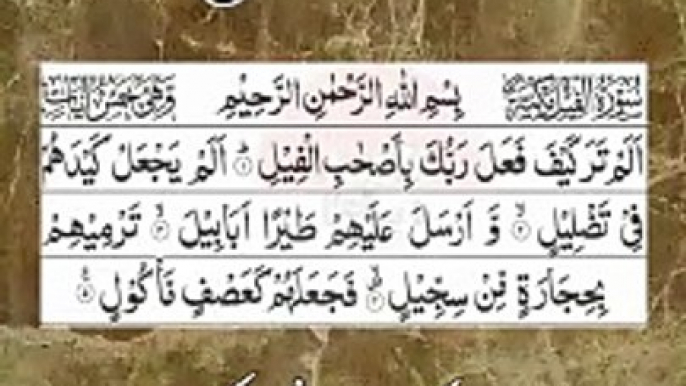 سُوْرَةُ الْفِيْلِ مَكِّيَّةٌ بِسْمِ اللهِ الرَّحْمٰنِ الرَّحِيْمِ وَهِيَ خَمْسُ اٰيَاتٍ
اَلَمْ تَرَ كَيْفَ فَعَلَ رَبُّكَ بِاَصْحٰبِ الْفِيْلِ ۱ اَلَمْ يَجْعَلْ كَيْدَهُمْ
فِيْ تَضْلِيْلٍ ۲ وَّ اَرْسَلَ عَلَيْهِمْ طَيْرًا اَبَابِيْلَ ۳ تَرْمِيْهِمْ
بِحِجَارَةٍ مِّنْ سِجِّيْلٍ ۴ فَجَعَلَهُمْ كَعَصْفٍ مَّاْكُوْلٍ ۵